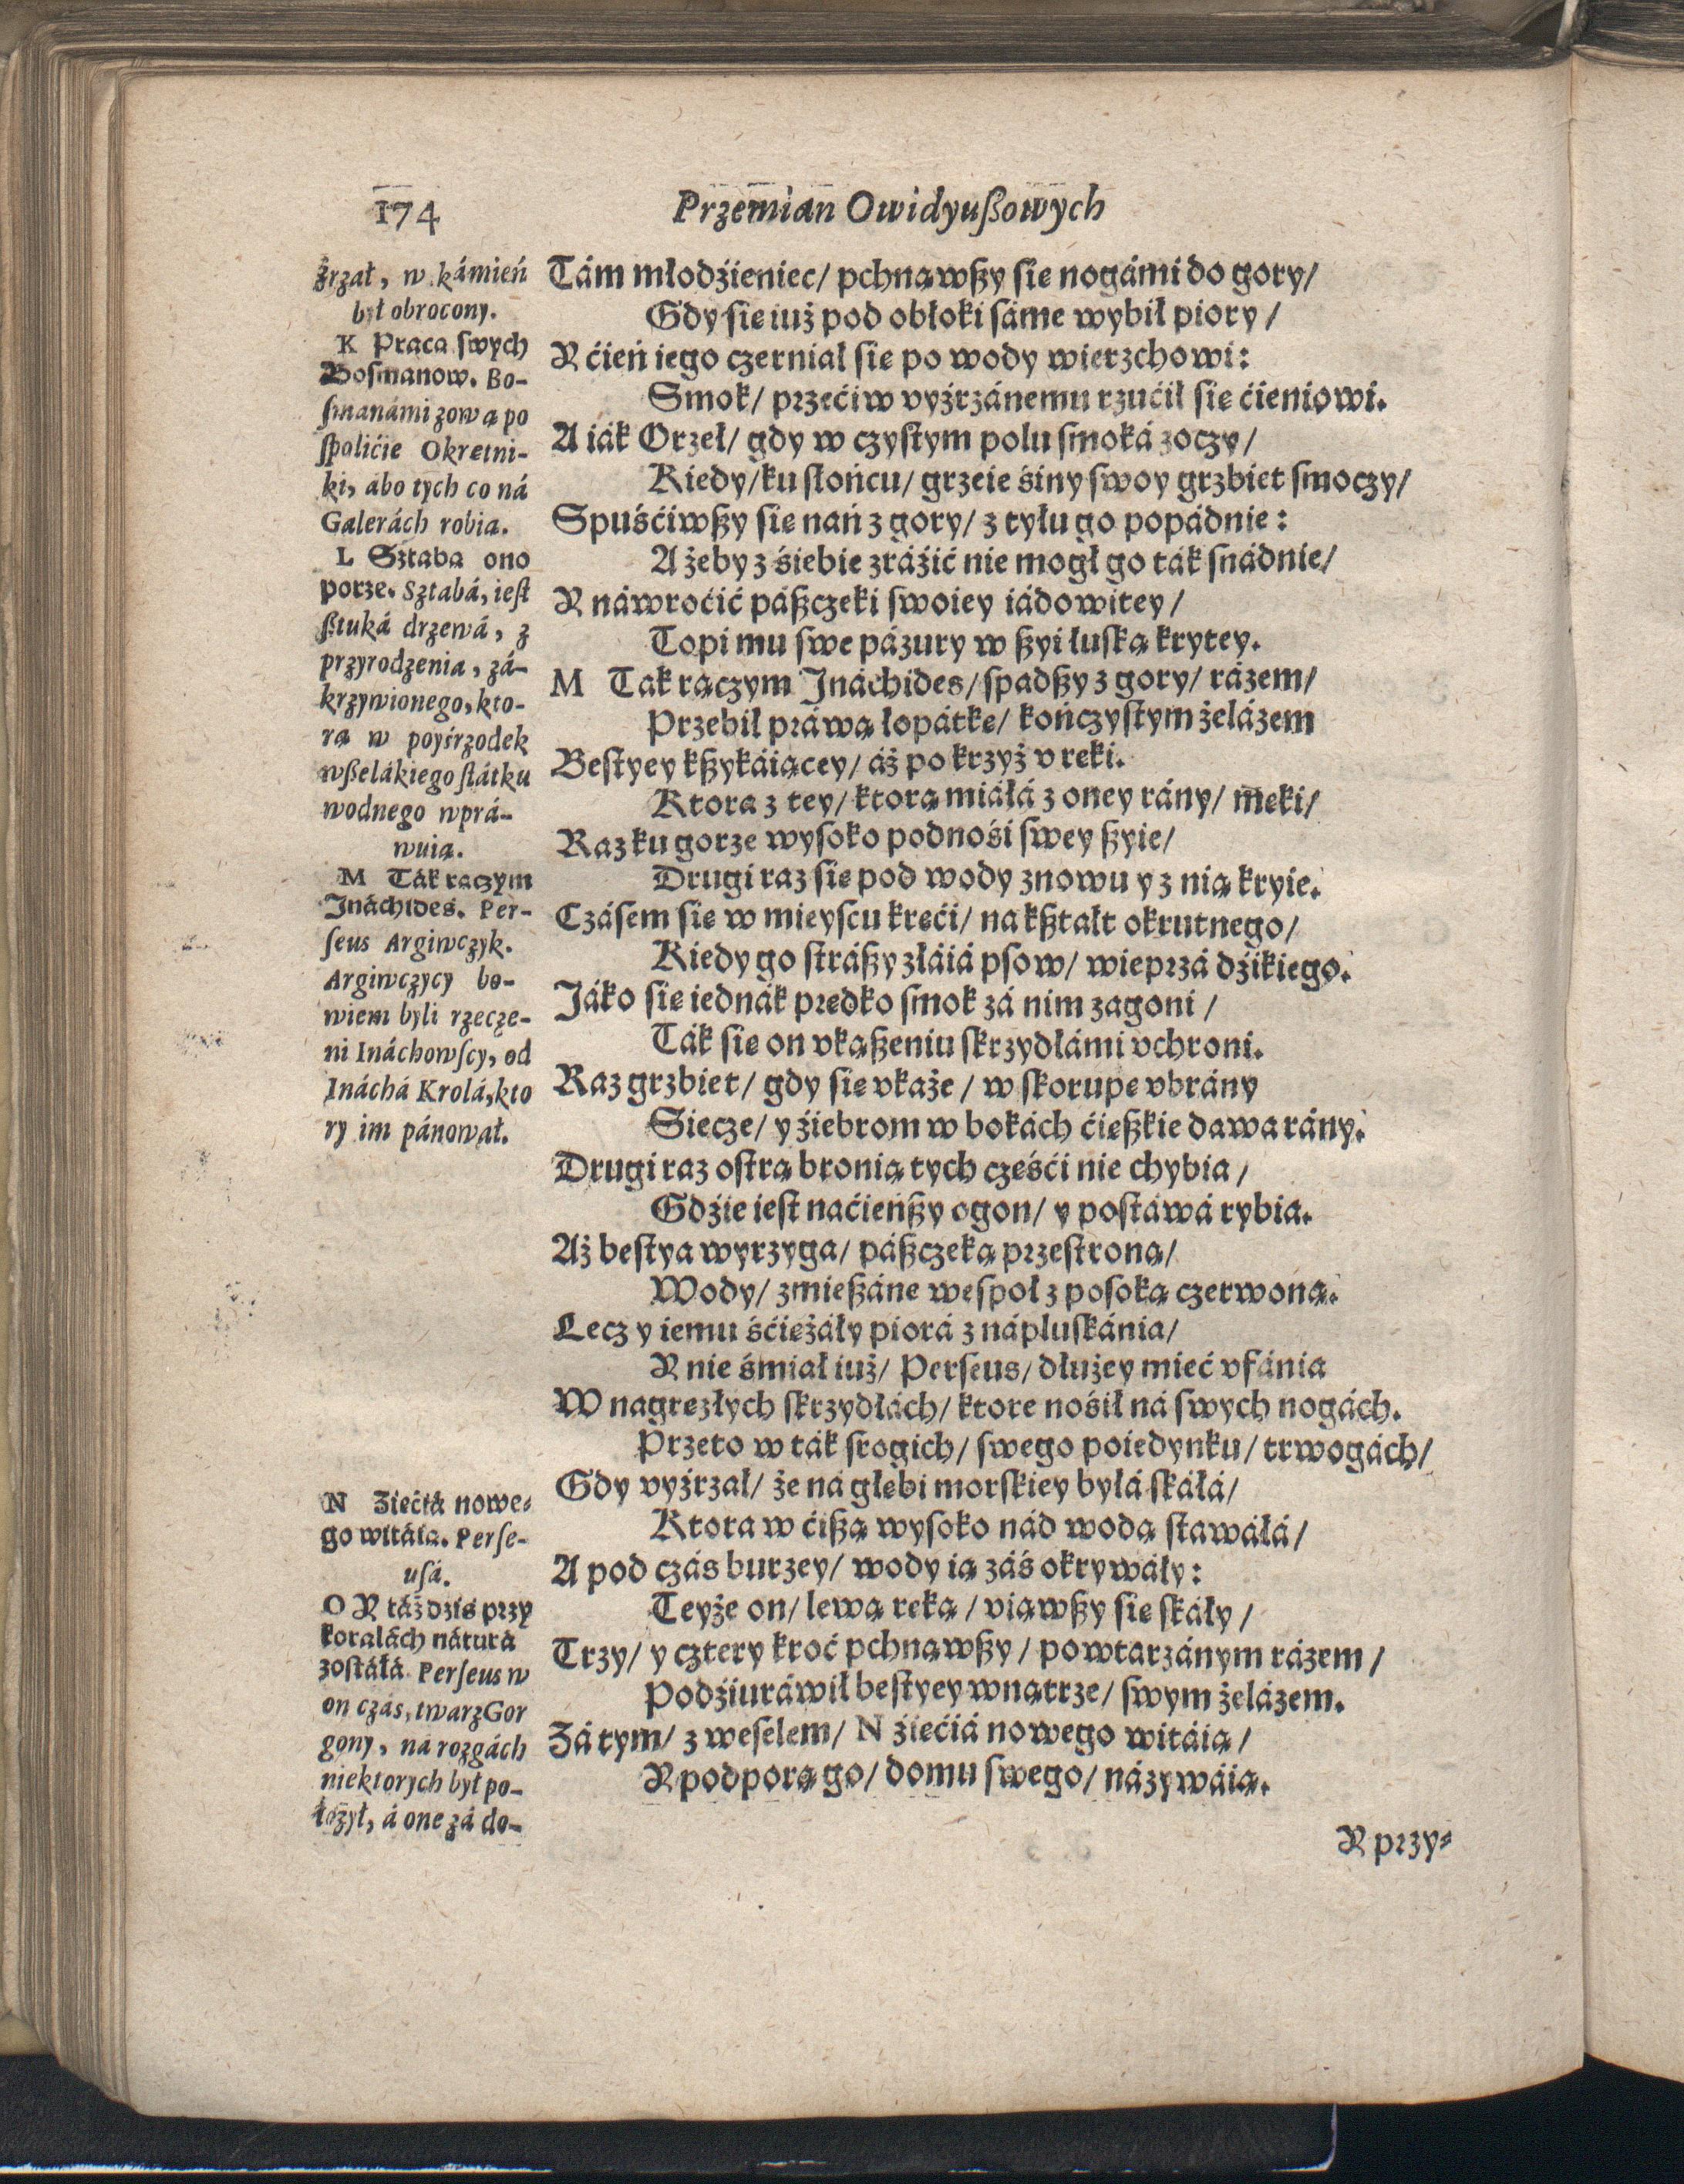 174
Przemian Owidyuſzowych
źrzał, w kámień
był obrocony.
K Praca ſwych
Boſmanow. Bo-
ſmanámi zową po
ſpolićie Okretni-
ki, ábo tych co ná
Galerách robia.
L Sztaba ono
porze. Sztabá, ieſt
ſztuká drzewá, z
przyrodzenia, zá-
krzywionego, kto-
ra w poyśrzodek
wſzelákiego ſtátku
wodnego wprá-
wuią.
M Ták rączym
Ináchides. Per-
ſeus Argiwczyk.
Argiwczycy bo-
wiem byli rzecze-
ni Ináchowſcy, od
Ináchá Krolá, kto
ry im pánował.
N Ziećiá nowe-
go witáią. Perſe-
uſá.
O Y táż dziś przy
koralách náturá
zoſtáłá Perſeus w
on czás, twarz Gor
gony, ná rozgách
niektorych był po-
łożył, á one zá do-
Tám młodźieniec/ pchnąwſzy ſie nogámi do gory/
Gdy ſie iuż pod obłoki ſáme wybił piory/
Y ćień iego czerniał ſie po wody wierzchowi:
Smok/ przećiw vyźrzánemu rzućił ſie ćieniowi.
A iák Orzeł/ gdy w czyſtym polu ſmoká zoczy/
Kiedy/ ku słońcu/ grzeie śiny ſwoy grzbiet ſmoczy/
Spuśćiwſzy ſie nań z gory/ z tyłu go popádnie:
A żeby z śiebie zráźić nie mogł go ták ſnádnie/
Y náwroćić pászczeki ſwoiey iádowitey/
Topi mu ſwe pázury w ſzyi łuſką krytey.
M Tak rączym Jnáchides/ ſpadſzy z gory/ rázem/
Przebił práwą łopátkę/ kończyſtym żelázem
Beſtyey kſzykáiącey/ áż po krzyż v reki.
Ktora z tey/ ktorą miáłá z oney rány/ meki/
Raz ku gorze wyſoko podnośi ſwey ſzyie/
Drugi raz ſie pod wody znowu y z nią kryie.
Czáſem ſie w mieyſcu kreći/ na kſztałt okrutnego/
Kiedy go ſtráſzy złáiá pſow/ wieprzá dźikiego.
Jáko ſie iednák predko ſmok zá nim zagoni/
Ták ſie on vkąſzeniu ſkrzydłámi vchroni.
Raz grzbiet/ gdy ſie vkaże/ w ſkorupe vbrány
Siecze/ y źiebrom w bokách ćieſzkie dawa rány.
Drugi raz oſtrą bronią tych cześći nie chybia/
Gdźie ieſt naćieńſzy ogon/ y poſtáwá rybia.
Aż beſtya wyrzyga/ pászczeką przeſtroną/
Wody/ zmieſzáne weſpoł z poſoką czerwoną.
Lecz y iemu śćieżáły piorá z nápluſkánia/
Y nie śmiał iuż/ Perſeus/ dłużey mieć vfánia
W nagrezłych ſkrzydłách/ ktore nośił ná ſwych nogách.
Przeto w ták ſrogich/ ſwego poiedynku/ trwogách/
Gdy vyźrzał/ że ná głebi morſkiey byłá ſkáłá/
Ktora w ćiſzą wyſoko nád wodą ſtawáłá/
A pod czás burzey/ wody ią záś okrywáły:
Teyże on/ lewą reką/ viąwſzy ſie ſkáły/
Trzy/ y cztery kroć pchnąwſzy/ powtarzánym rázem/
Podźiuráwił beſtyey wnątrze/ ſwym żelázem.
Zá tym/ z weſelem/ N źiećiá nowego witáią/
Y podporą go/ domu ſwego/ názywáią.
Y przy-